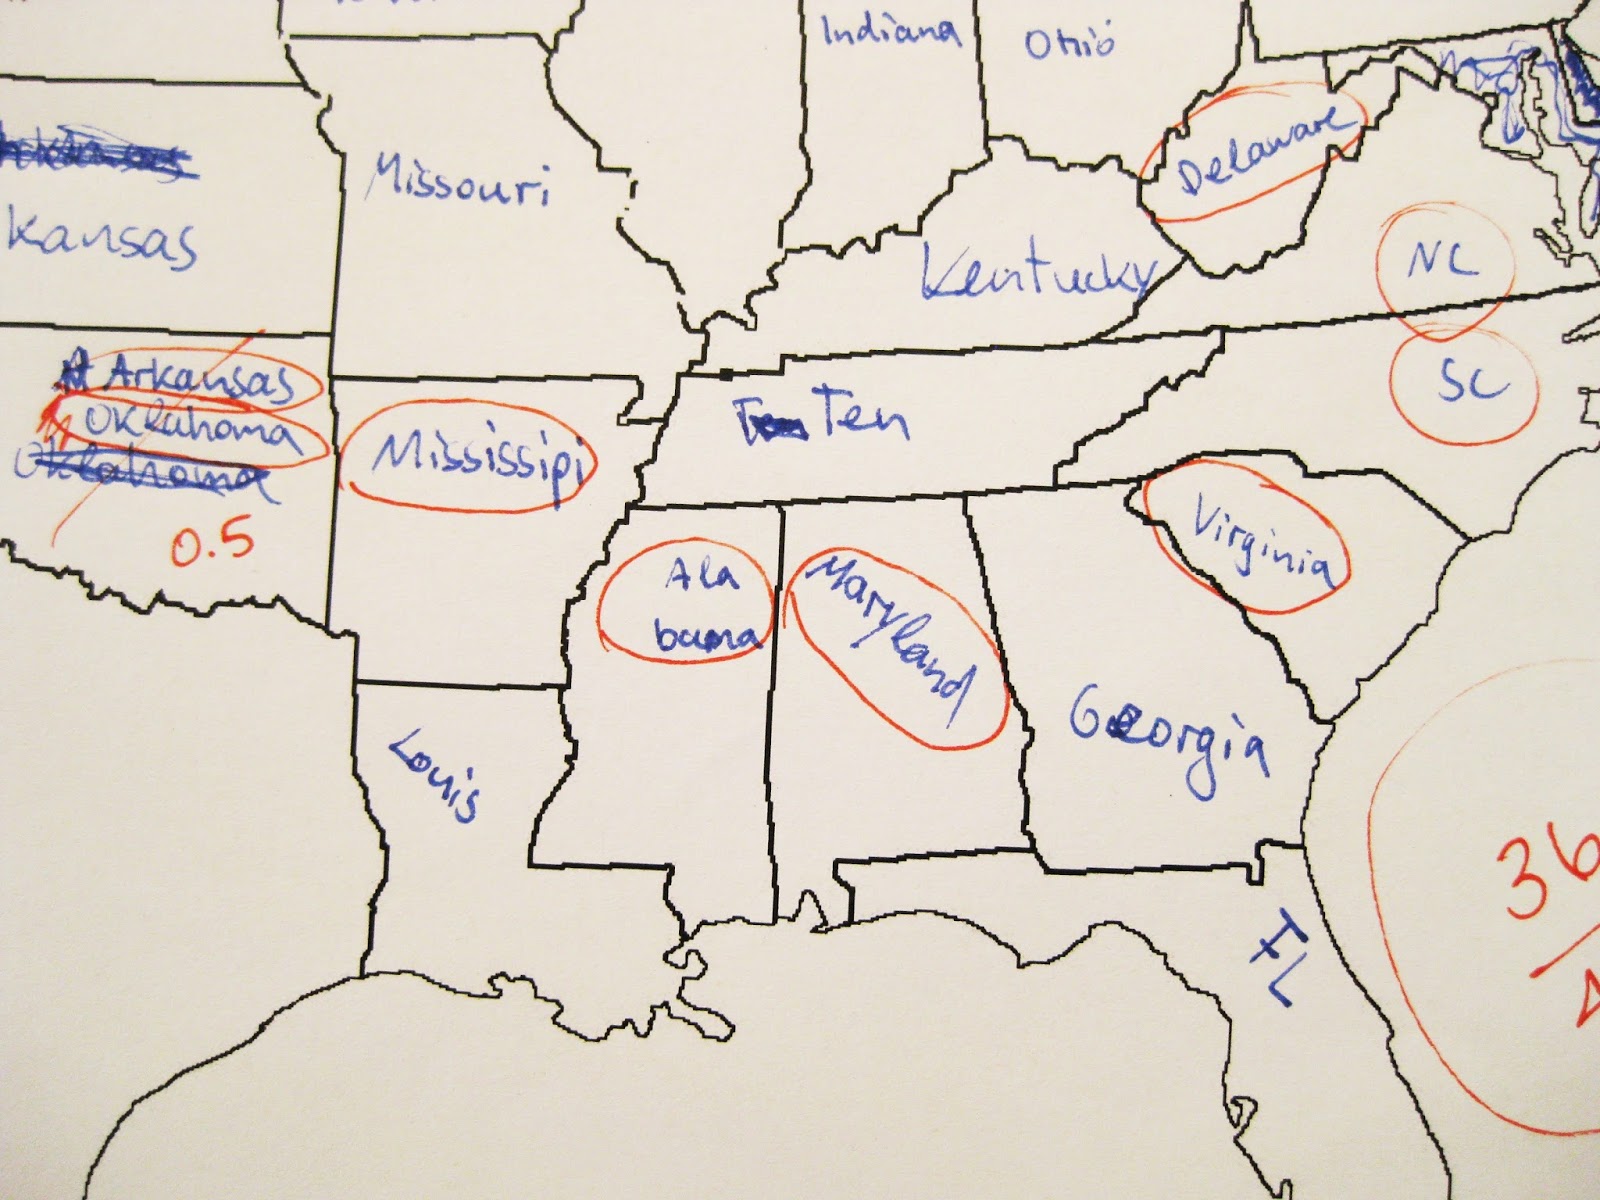 Indiana
Ohio
Missouri
Delaware
Kansas
Kentucky
NC
Arkansas
Oklahoma
Oklahoma
0.5
Mississipi
Ten
SC
Virginia
Ala
bama
Maryland
Georgia
Louis
FL
36